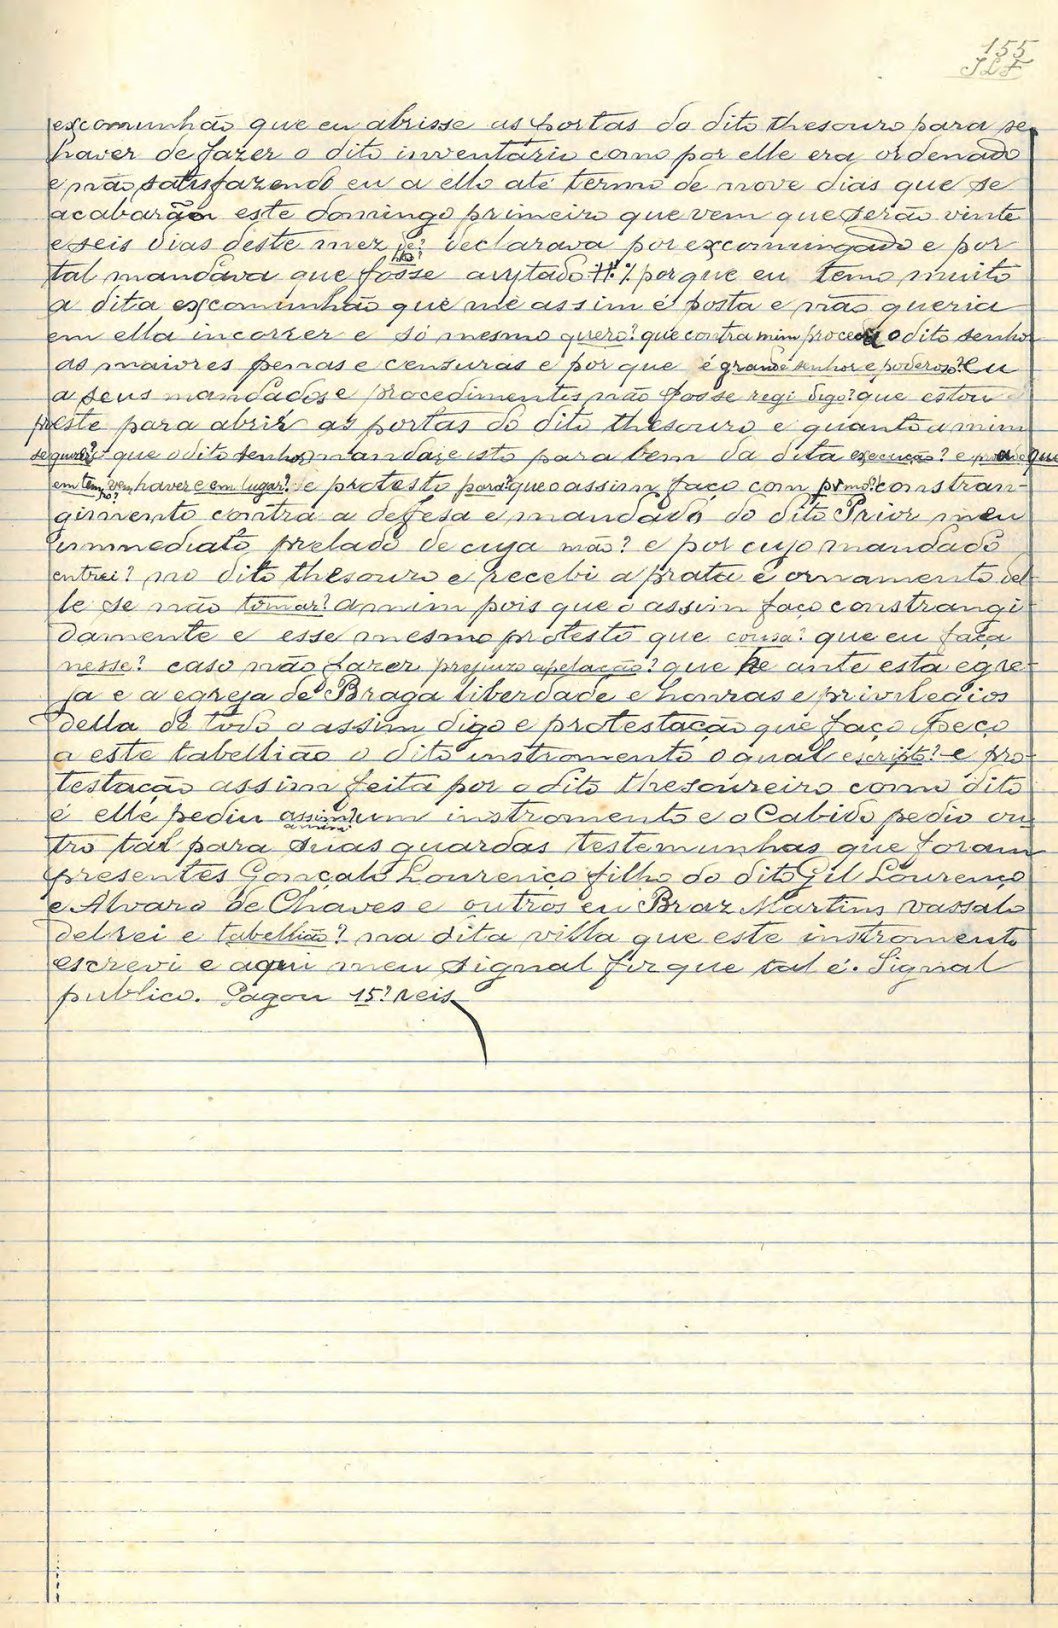 155
excomunhão que eu abrisse as portas do dito thesouro para se
haver de fazer o dito inventário como por elle era ordenado
e não satisfazendo eu a ello até termo de nove dias que se
acabarão este domingo primeiro que vem que serão vinte
e seis dias deste mez de? declarava por excomungado e por
tal mandava que fosse porque eu temo muito
a dita excomunhão que me assim é posta e não queria
em ella incorrer e só mesmo quero? que contra mim proceda o dito senhor
as maiores penas e censuras e por que é grande senhor e poderoso? Eu
a seus mandados e procedimentos não fosse regi digo? que estou
preste para abrir as portas do dito thesouro e quanto a mim
que o dito senhor manda e isto para bem da dita execução? e
haver e em lugar? e protesto para? que o assim faço com constran-
gimento contra a defesa e mandado do dito Prior meu
immediato prelado de cuja mão? e por cujo mandado
entrei? no dito thesouro e recebi a prata e ornamento del-
le se não tomar? a mim pois que o assim faço constrangi
damente e esse mesmo protesto que cousa? que eu faça
nesse? caso não fazer prejuizo apelação? que he ante esta egre-
ja e a egreja de Braga liberdade e honras e privilegios
della de tudo o assim digo e protestação que faço peço
a este tabellião o dito instromento o qual escripto? e pro-
testação assim feita por o dito thesoureiro como dito
é elle pediu assim? um instromento e o Cabido pedio ou
tro tal para suas guardas testemunhas que foram
presentes Gonçalo Lourenço filho do dito Gil Lourenço
e Alvaro de Chaves e outros eu Braz Martins vassalo
delrei e tabellião? na dita villa que este instromento
escrevi e aqui meu signal fiz que tal é. Signal
publico. Pagou 15? reis